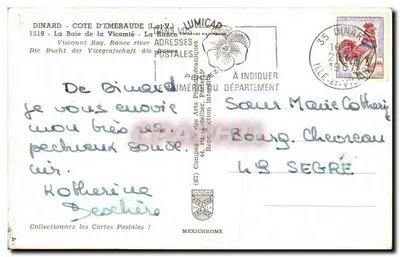 DINARD - COTE D'EMERAUDE (I.-et-V.)
1319 - La Baie de la Vicomté - La Rance
Viscount Bay, Rance river
Die Bucht der Vicegrafschaft die Rance
LUMICAP
ADRESSES
POSTALES
PENSEZ
À INDIQUER
NUMÉRO DU DÉPARTEMENT
35 DINARD
ILLE-ET-VILAINE
De Dinard
je vous envoie
mon très res
pectueux souve
nir.
Katherine
Collectionnez les Cartes Postales !
MEXICHROME
Soeur Marie Catherine
Bourg. Chevreau
49 SEGRÉ